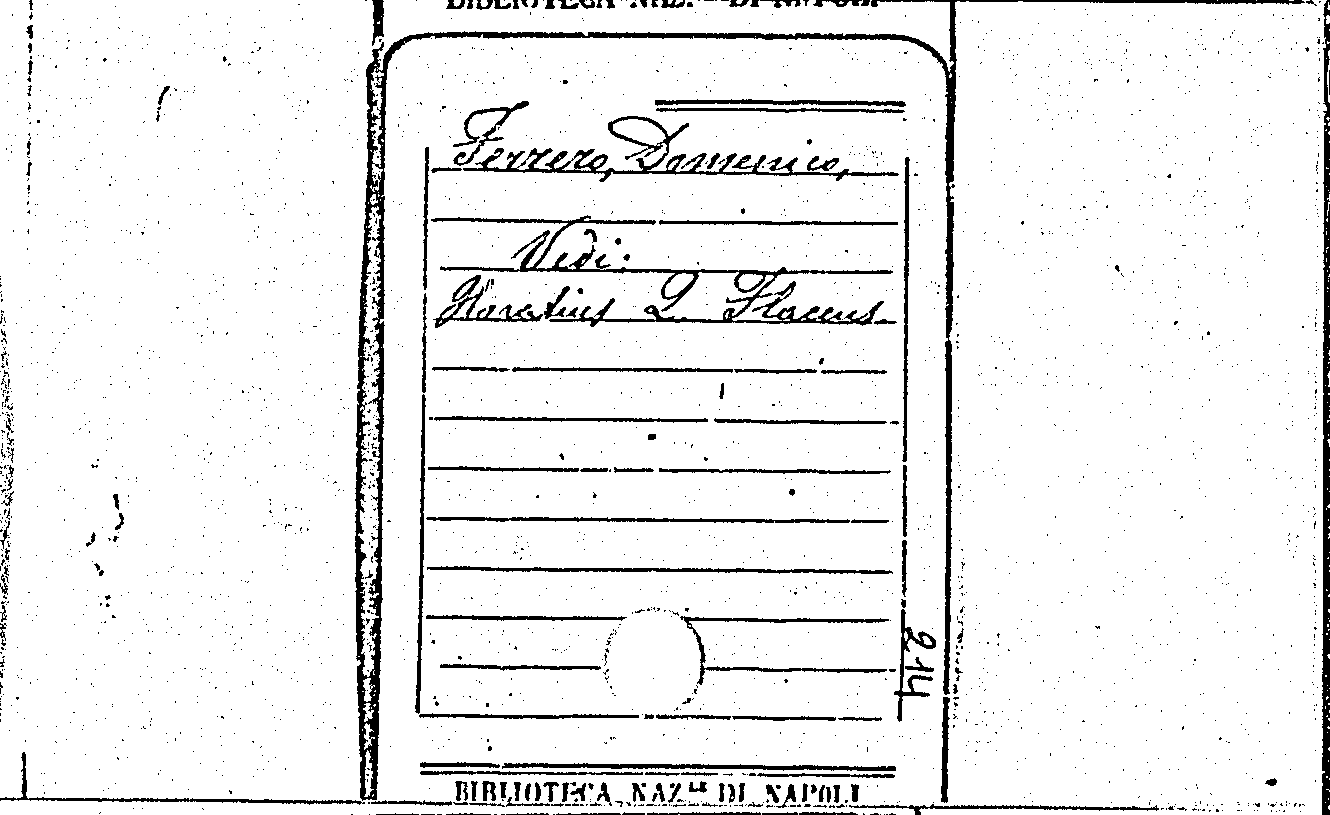 BIBLIOTECA NAZ.LE DI NAPOLI
Ferrero, Domenico,
Vedi:
Horatius Q. Flaccus.
214
BIBLIOTECA NAZ.LE DI NAPOLI